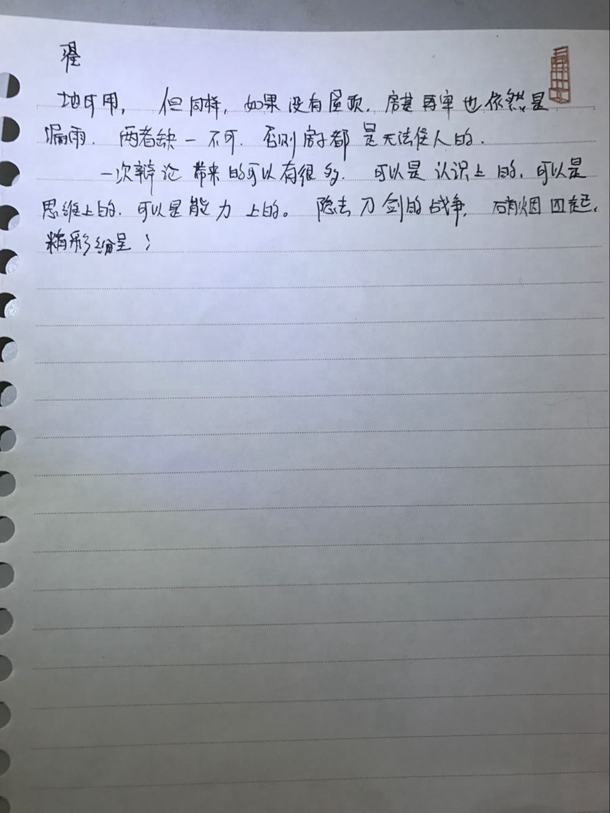 地可用, 但同样, 如果没有屋顶. 房基再牢也依然是
漏雨. 两者缺一不可. 否则房子都是无法住人的.
一次辩论带来的可以有很多. 可以是认识上的, 可以是
思维上的. 可以是能力上的。 隐去刀剑的战争, 硝烟四起,
精彩纷呈;